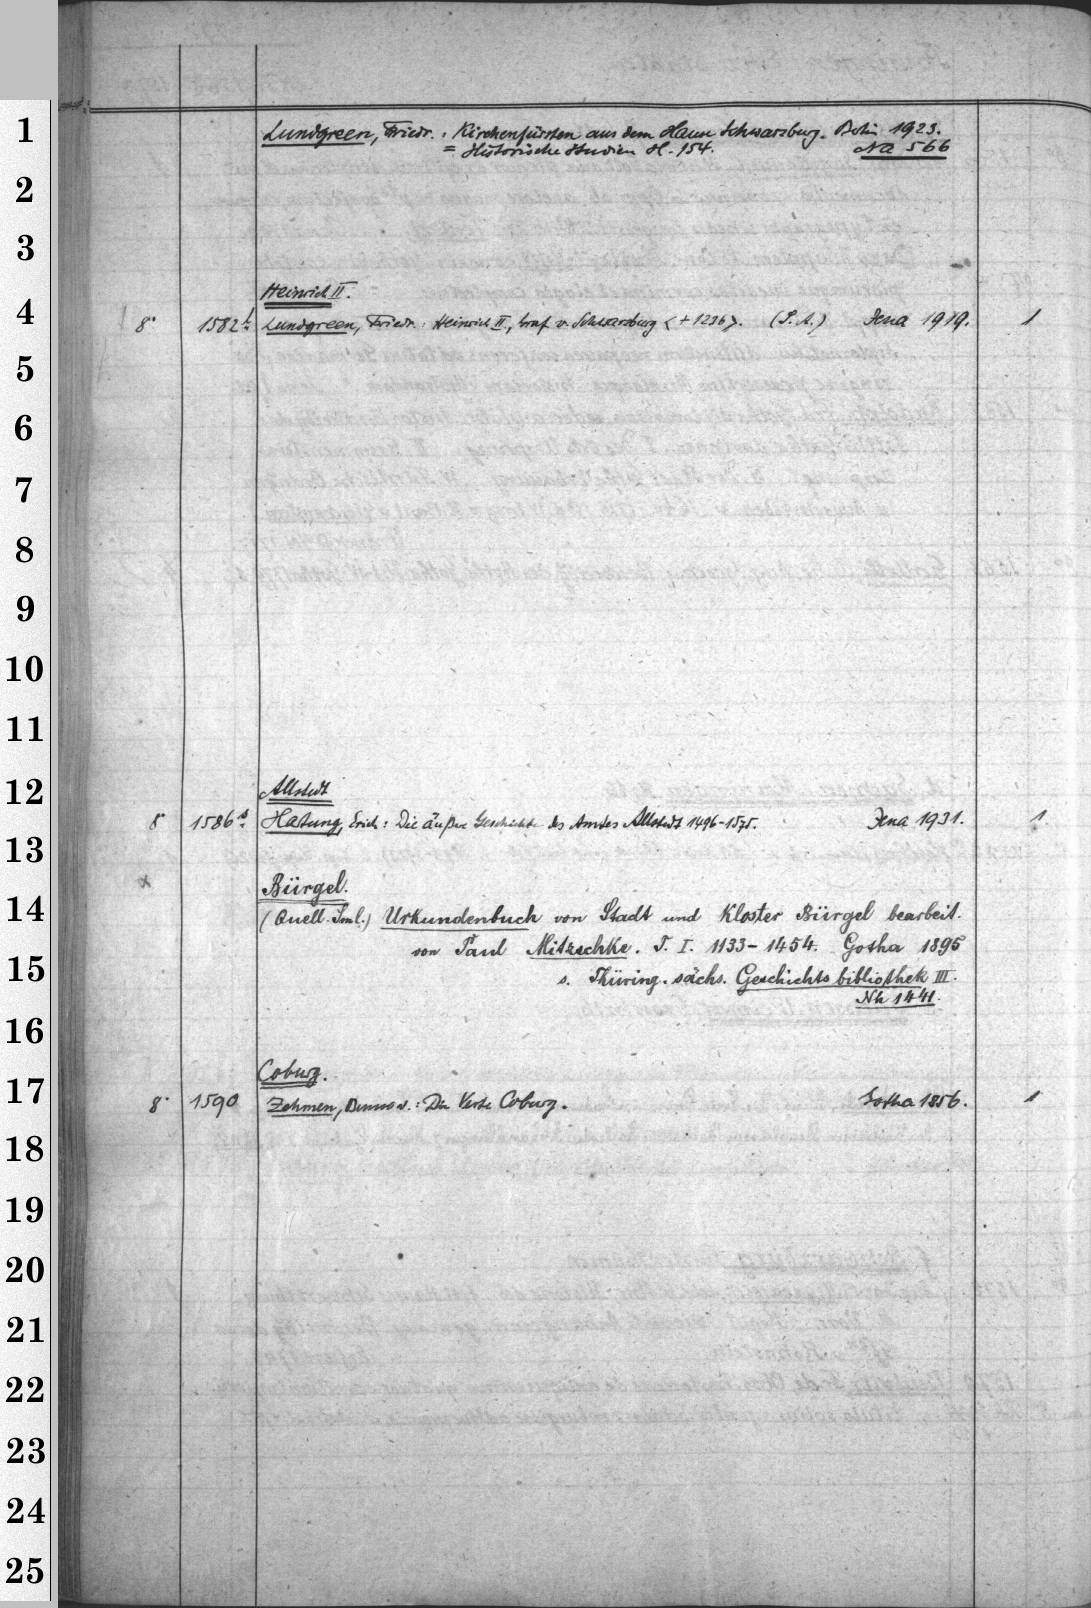 1
Lundgreen, Friedr.: Kirchenfürsten aus dem Hause Schwarzburg. Berlin 1923.
= Historische Studien H. 154. Na 566
2
3
Heinrich II.
4
8° 1582 b. Lundgreen, Friedr.: Heinrich II, Graf v. Schwarzburg (+1236). (S.A.) Jena 1919. 1
5
6
7
8
9
10
11
12
Allstedt
8° 1586 Hartung, Erich: Die äußere Geschichte des Amtes Allstedt 1496-1575. Jena 1931. 1.
13
x
Bürgel.
14
(Quell. Sml.) Urkundenbuch von Stadt und Kloster Bürgel bearbeit.
von Paul Mitzschke. T. I. 1133-1454. Gotha 1895
15
s. Thüring. sächs. Geschichtsbibliothek III.
Nh 1441.
16
Coburg.
17
8° 1590 Zehmen, Benno v.: Die Veste Coburg. Gotha 1856. 1
18
19
20
21
22
23
24
25